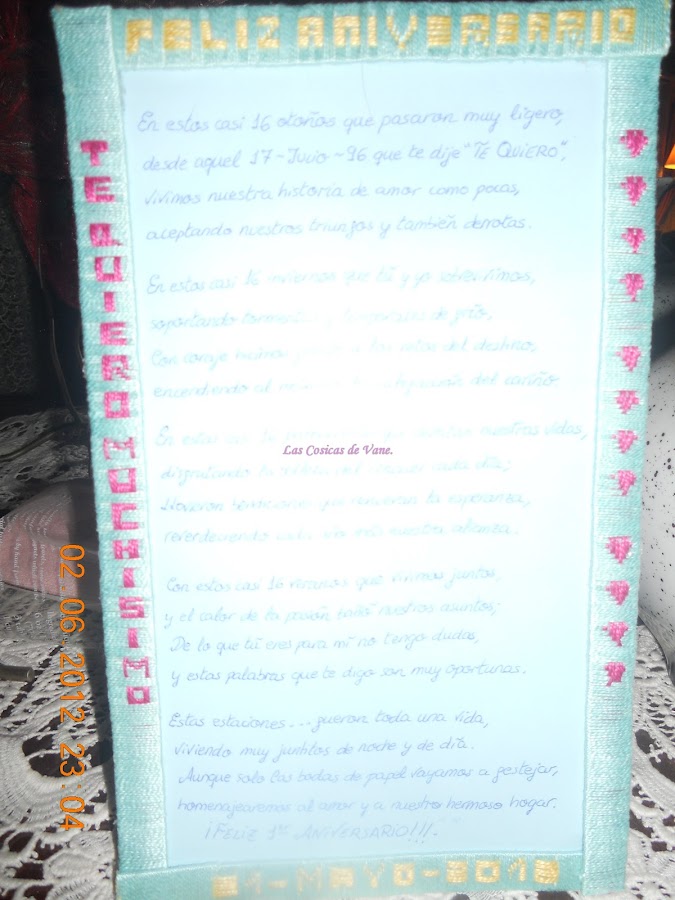 FELIZ ANIVERSARIO
TE QUIERO MUCHISIMO
En estos casi 16 otoños que pasaron muy ligero,
desde aquel 17-Junio-96 que te dije "TE QUIERO",
vivimos nuestra historia de amor como pocas,
aceptando nuestros triunfos y también derrotas.
En estos casi 16 inviernos que tú y yo sobrevivimos,
soportando tormentas y temporales de frío,
Con coraje hicimos a los retos del destino,
encendiendo al del cariño
En estas casi 16 que nuestras vidas,
disfrutando cada día;
llovieron bendiciones que renuevan la esperanza,
reverdeciendo cada día más nuestra alianza.
Las Cosicas de Vane.
Con estos casi 16 veranos que vivimos juntos,
y el calor de la pasión nuestros asuntos;
De lo que tú eres para mí no tengo dudas,
y estas palabras que te digo son muy oportunas.
Estas estaciones... fueron toda una vida,
viviendo muy juntitos de noche y de día.
Aunque solo las bodas de papel vayamos a festejar,
homenajearemos al amor y a nuestro hermoso hogar.
¡FELIZ 1er ANIVERSARIO!!!.
21-MAYO-2012
02.06.2012 23:04